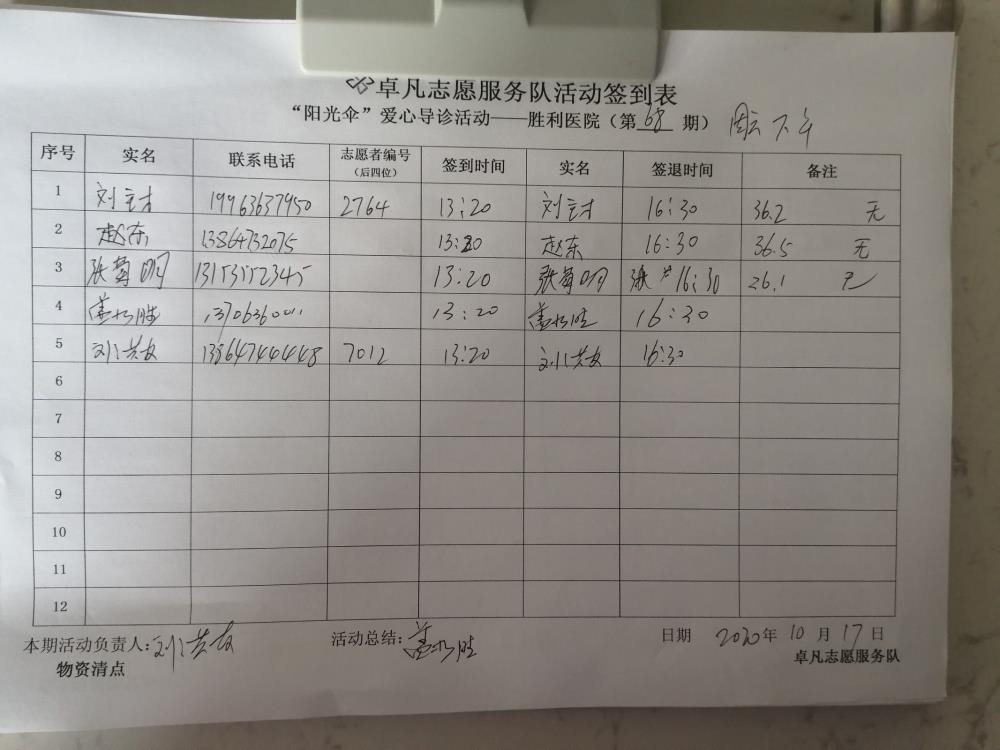 卓凡志愿服务队活动签到表
“阳光伞”爱心导诊活动——胜利医院（第 68 期） 下午
序号 实名 联系电话 志愿者编号（后四位） 签到时间 实名 签退时间 备注
1 刘 19963637950 2764 13:20 刘 16:30 36.2 无
2 赵东 13864732075 13:20 赵东 16:30 36.5 无
3 张菊明 13153552345 13:20 张菊明 16:30 无
4 13:20 16:30
5 刘洪友 13864744448 7012 13:20 刘洪友 16:30
6
7
8
9
10
11
12
本期活动负责人：刘洪友 活动总结： 日期 2020年 10 月 17 日
物资清点 卓凡志愿服务队